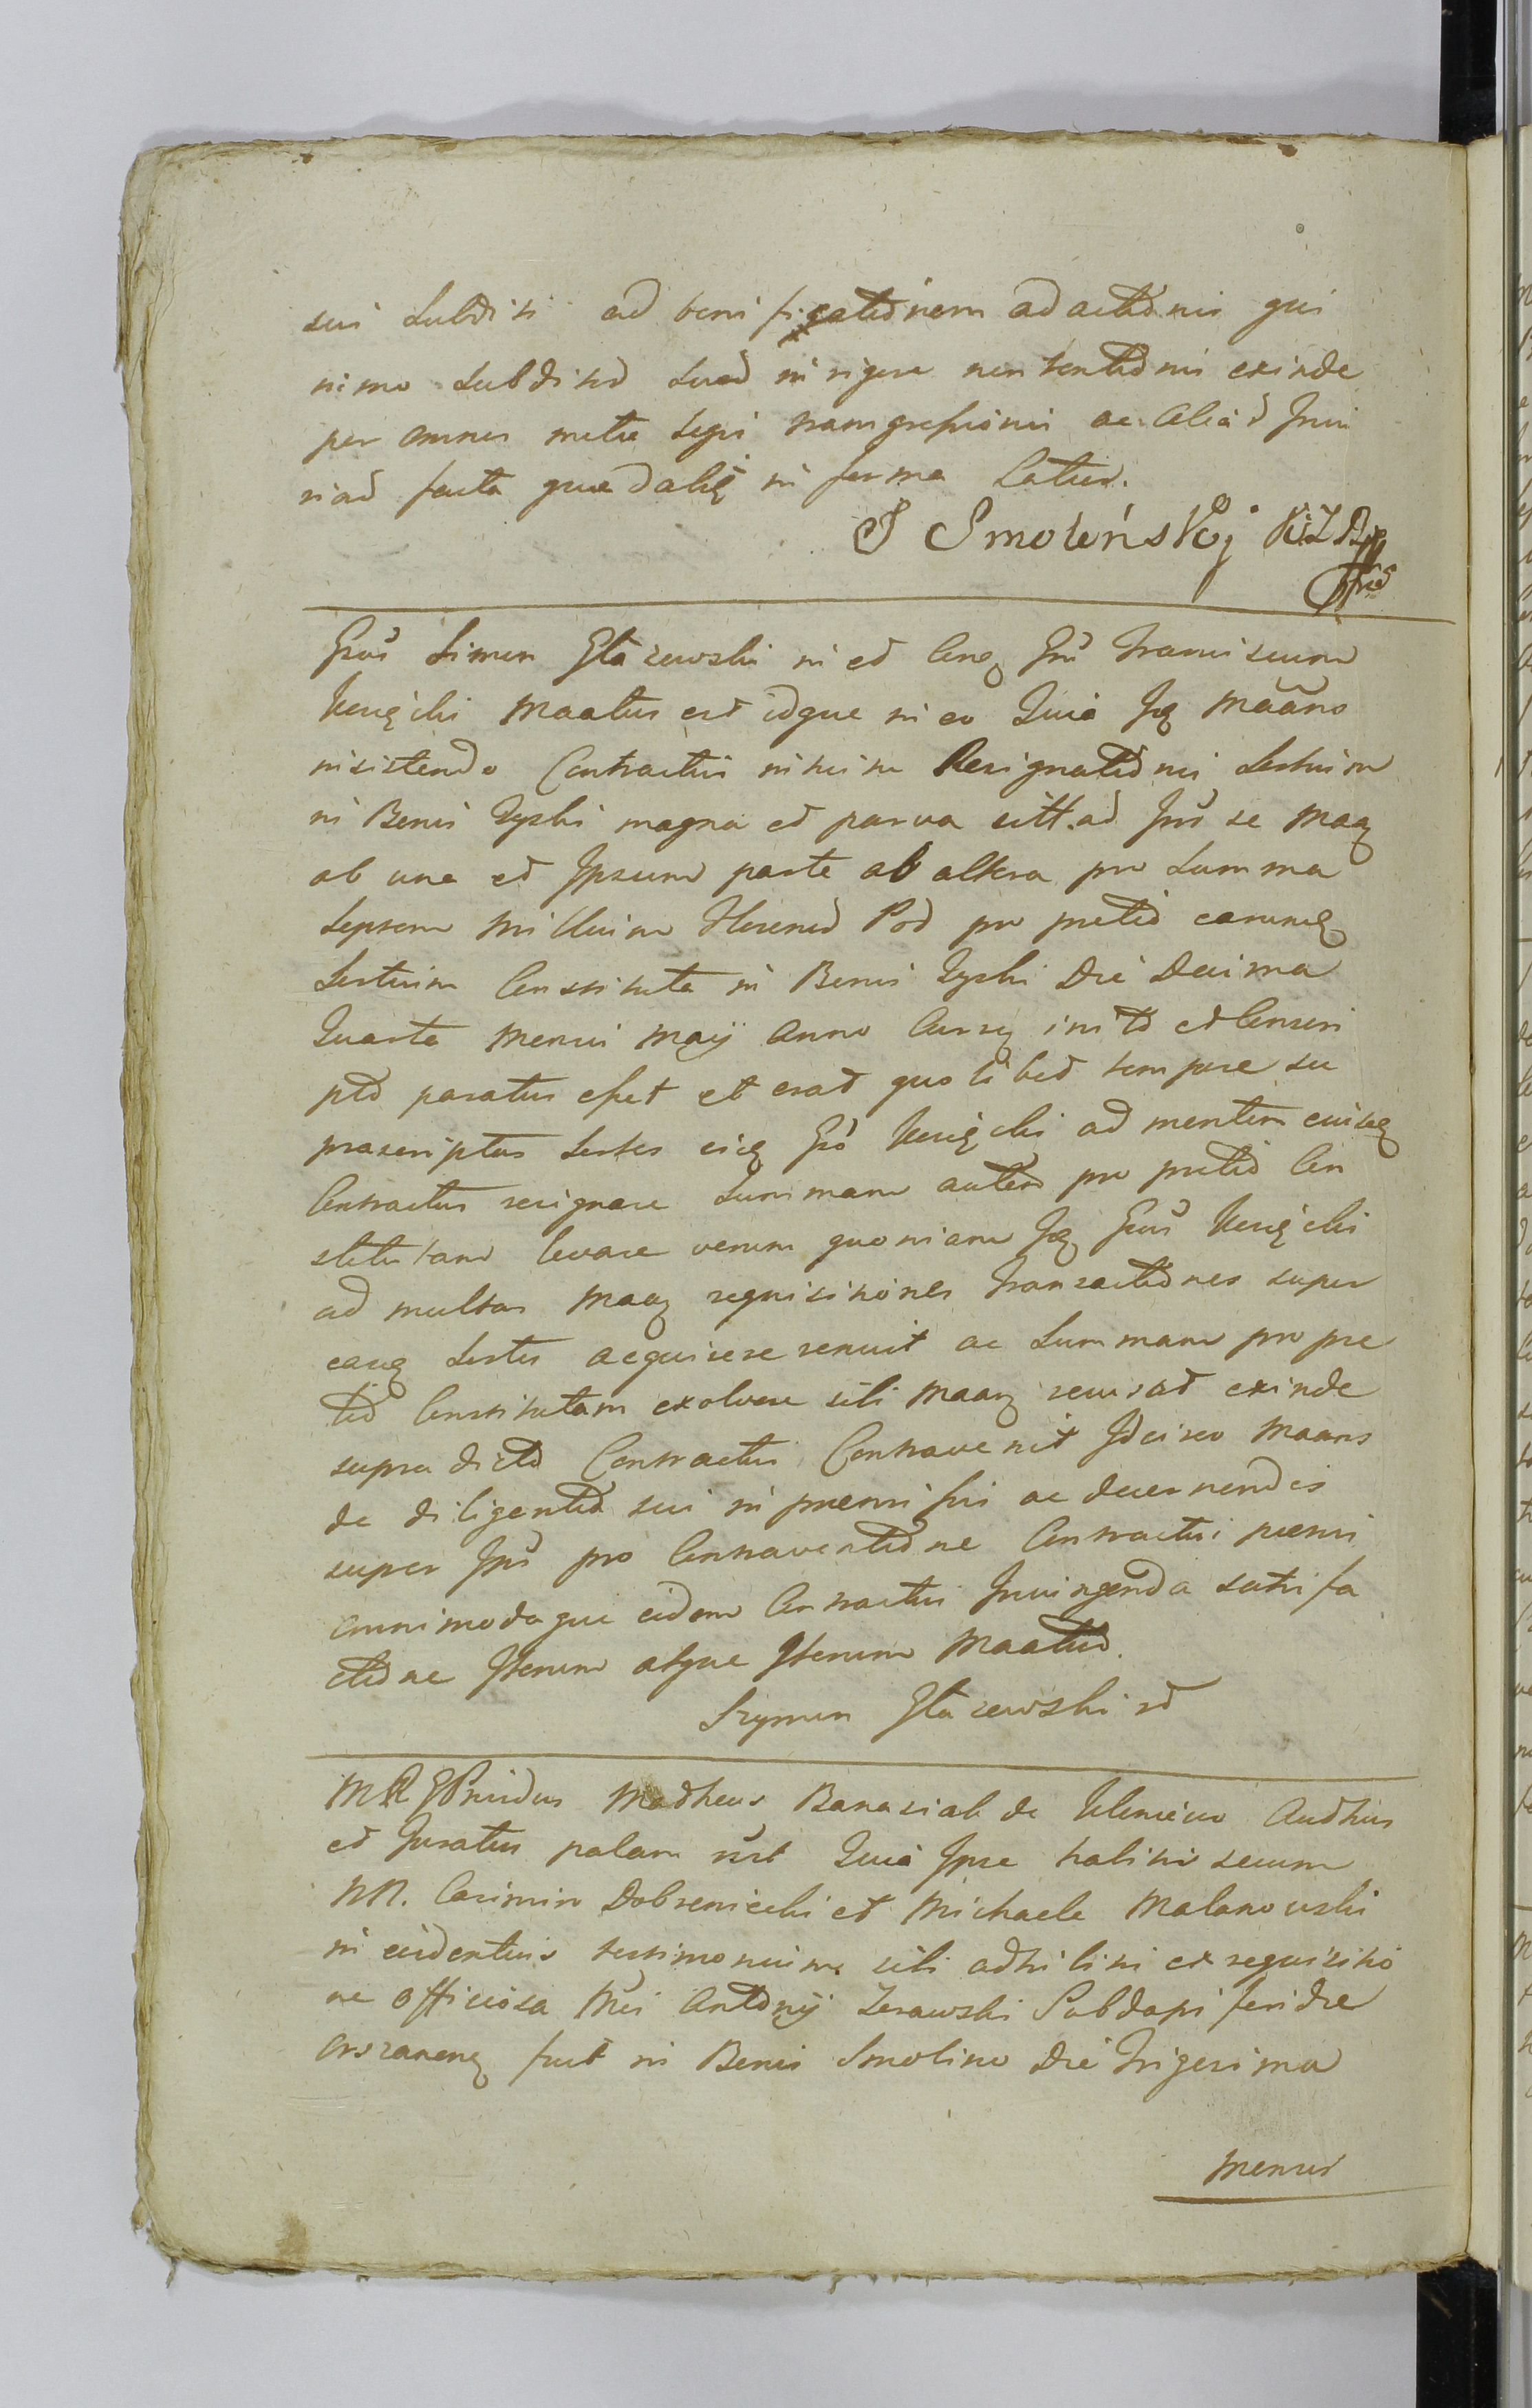 sui Subditi ad beni ficatiōnem ad actiōnis qui
nimo Subditos suos in rigore non tentiōnis exinde
per omnes metre legis transgressionis ac aliàs Juri
ricis facta quae dalis in forma Latius.
J Smoleński
Gsus Simon Głazewski in et Coneq Gsm Franciscum
maatus est idque in eo Quia Isq maāns
insistendo Contractui Resignatiōnis Sortium
in Bonis Zyski magna et parva sitt. ad Jus se maaq
ab una et Ipsum parte ab altera pro Summa
Septem millium Florenos Pol pro pretio earumq
Sortium Constituta in Bonis Zyski Die Decima
Quarta mensis maij anno Cursq inito et Conscri
pto paratus esset et erat quolibet tempore su
prascriptas Sortes eidq Gso ad mentem eiusdq
Contractus resignare Summam autem pro pretio Con
stitutam levare verum quoniam Isq Gsus
ad multas maaq requisitiones transactiōnes super
easq Sortes acquirere renuit ac Summam pro pre
tio Constitutam exolvere sibi maaq recusat exinde
supra dicto Contractui Contravenit Idcirco maans
de diligentia sui in praemissis ac decernendis
super Jus pro Contraventiōne Contractui praemi
omnimodaque eidem Contractui Iniungenda satisfa
ctiōne Iterum atque Iterum maatus.
Szymon Głazewski
MR GPrvidus Matheus Banasiak de Audtus
et Juratus palam rect Quia Ipse habitis secum
NN. Casimiro Dobreniecki et Michaele Malanowski
in evidentius testimonium sibi adhibitis ex requisitio
ne officiosa Mci Antonij Zerawski Subdapiferidae
orszanenq fuit in Bonis Smolino Die Trigesima
mensis